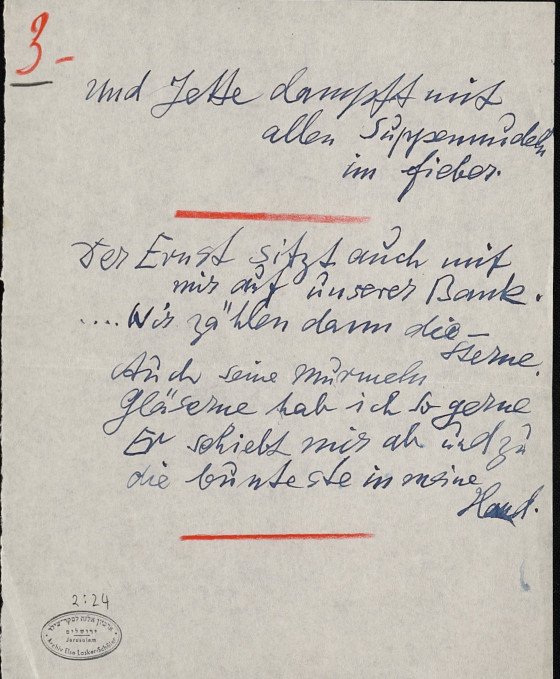 3-
und Jette dampft mit
allen Suppennudeln
im Fieber.
Der Ernst sitzt auch mit
mir auf unserer Bank.
....Wir zählen dann die –
Sterne.
Auch seine Murmeln
Gläserne hab ich so gerne
Er schiebt mir ab und zu
die bunteste in meine
Hand.
2:24
ארכיון אלזה לסקר-שילר
ירושלים
Jerusalem
Archiv Else Lasker-Schüler